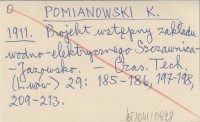 POMIANOWSKI K.
1911. Projekt wstępny zakładu
wodno-elektrycznego Szczawnica-
-Jazowsko. Czas. Tech.
(Lwów) 29: 185-186, 197-198,
209-213.